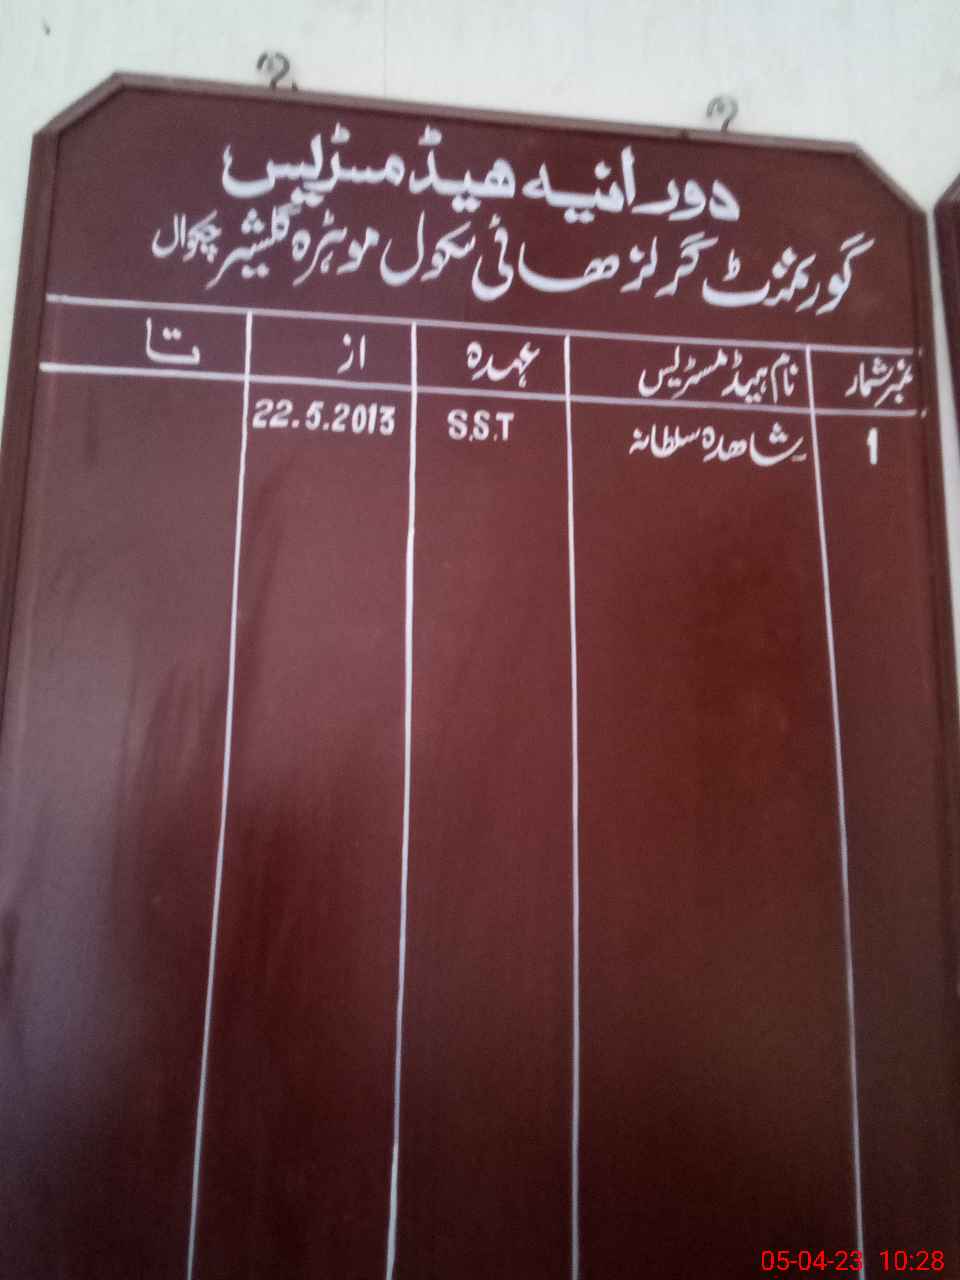 دورانیہ ھیڈ مسٹریس
گورنمنٹ گرلز ھائی سکول موہڑہ گلشیر چکوال
نمبر شمار نام ہیڈ مسٹریس عہدہ از تا
1 شاھدہ سلطانہ S.S.T 22.5.2013
05-04-23 10:28